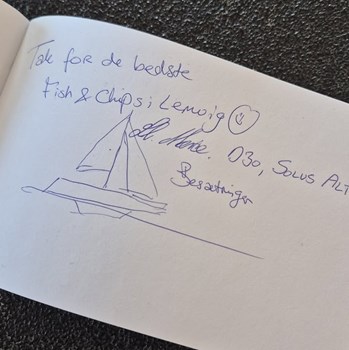 Tak for de bedste
Fish & Chips i Lemvig
D30, Solus Alt
Besætningen